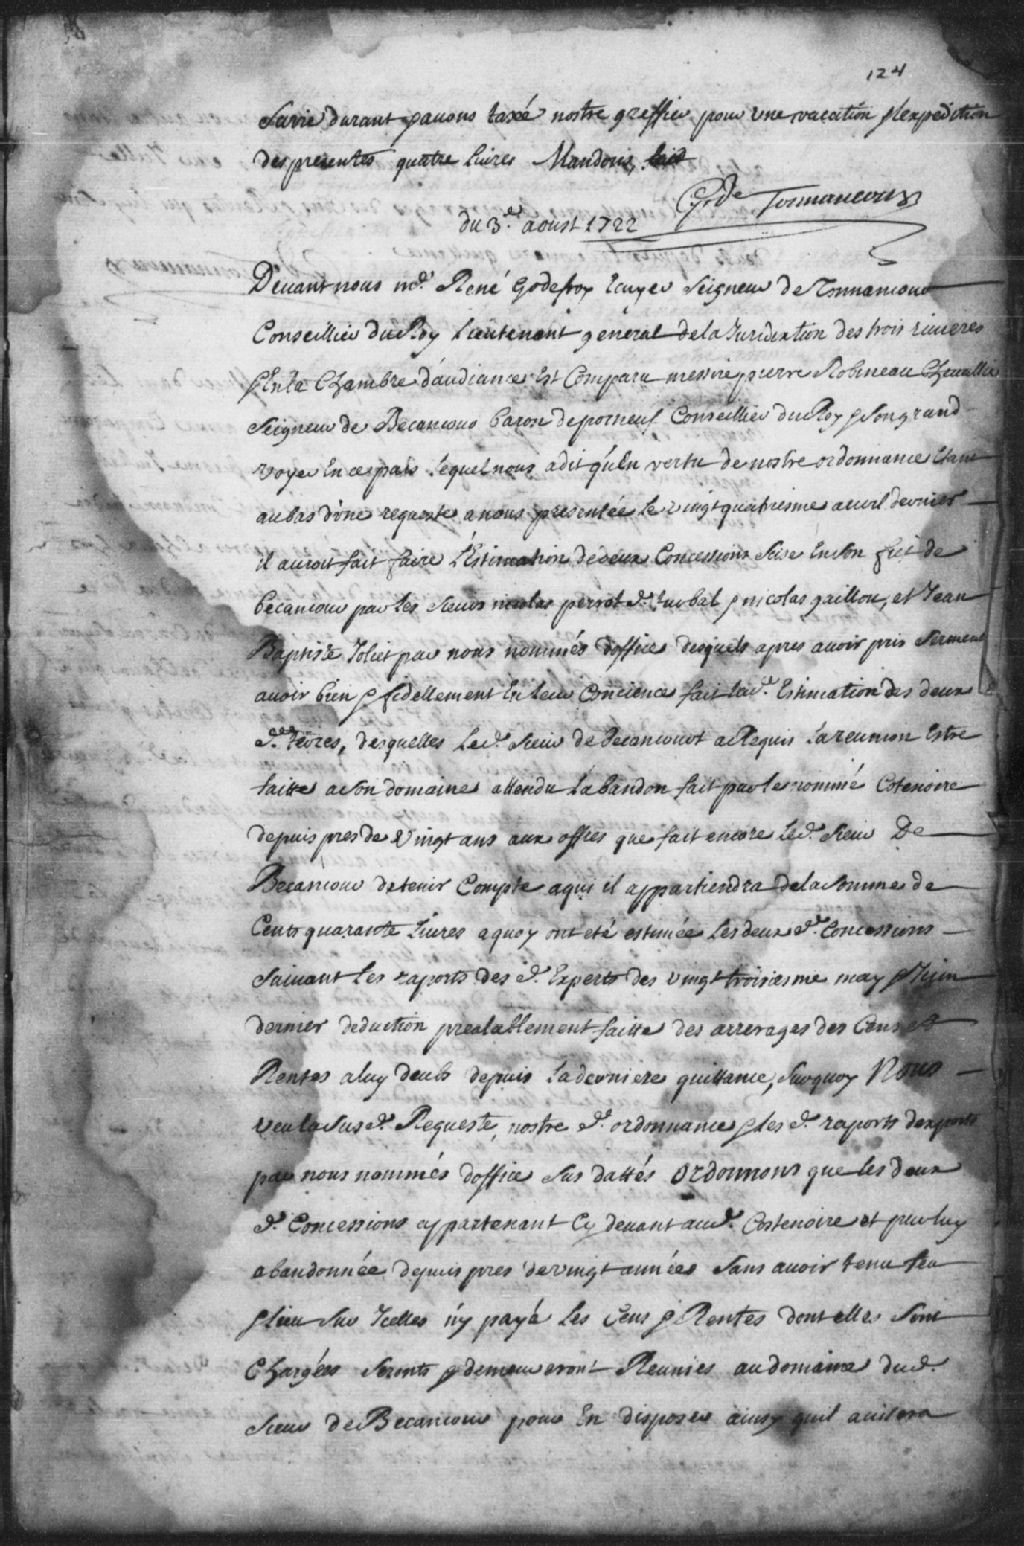 124
Sa vie durant & avons taxé nostre greffier pour une vacation & lexpedition
des presentes quatre livres Mandons
Godde Tonnancour
du 3.e aoust 1722
Devant nous m.e René Godefroy Ecuyer Seigneur de Tonnancour
Conseillier du Roy Lieutenant general de la Juridiction des trois rivieres
& En la Chambre daudiance Est Comparu messire pierre Robineau Chevallier
Seigneur de Becancour baron de porneuf Conseillier du Roy & son grand
voyer En ce païs Lequel nous a dit qu'En vertu de nostre ordonnance Etant
au bas d'une requeste a nous presentée le vingt quatriesme avril dernier
il auroit fait faire L'Estimation de deux Concessions Scise En son fief de
becancour par les Sieurs nicolas perrot d. turbal & nicolas gaillou, et Jean
Baptiste Joliet par nous nommés d'office desquels apres avoir pris Serment
avoir bien & fidellement En leur Concience fait la d.e Estimation des deux
d.es terres, desquelles Le d. Sieur de Becancourt a Requis La reunion Estre
faitte a son domaine attendu L'abandon fait par le nommé Cotenoire
depuis pres de Vingt ans aux offres que fait encore le d. Sieur De
Becancour de tenir Compte a qui il appartiendra de la Somme de
Cent quarante Livres a quoy ont été estimée Les deux d.e Concessions
Suivant Les raports des d. Experts des vingt troisiesme may & Juin
dernier deduction prealablement faitte des arrerages des Cens et
Rentes a luy deubs depuis La derniere quittance, Sur quoy Nous
veu la sus d. Requeste, nostre d. ordonnance & les d. raports dexperts
par nous nommés d'office sus dattés Ordonnons que les deux
d. Concessions appartenant Cy devant au d. Costenoire et par luy
abandonnée depuis pres de vingt années Sans avoir tenu feu
& lieu Sur Icelles n'y payé Les Cens & Rentes dont elles Sont
Chargées Seronts & demeureront Reunies au domaine du d.
Sieur de Becancour pour En disposer ainsy quil avisera